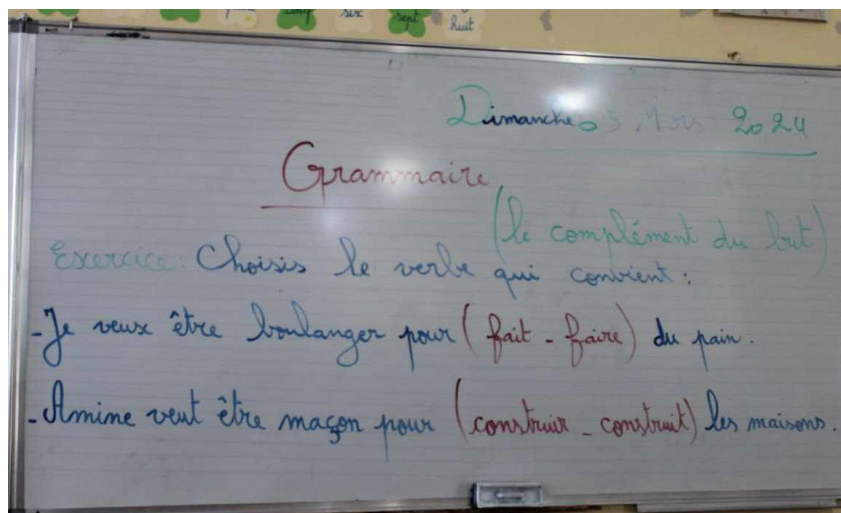 six sept huit
Dimanche 03 Mars 2024
Grammaire
(le complément du but)
Exercice: Choisis le verbe qui convient:
- Je veux être boulanger pour (fait - faire) du pain.
- Amine veut être maçon pour (construir - construit) les maisons.